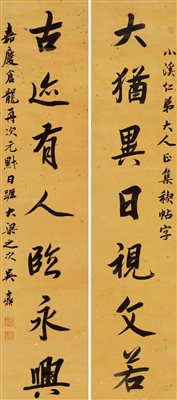 小溪仁弟大人正集禊帖字
大猶異日視文若
古迹有人臨永興
嘉慶倉龍再次元黓日躔大梁之次吳鼒